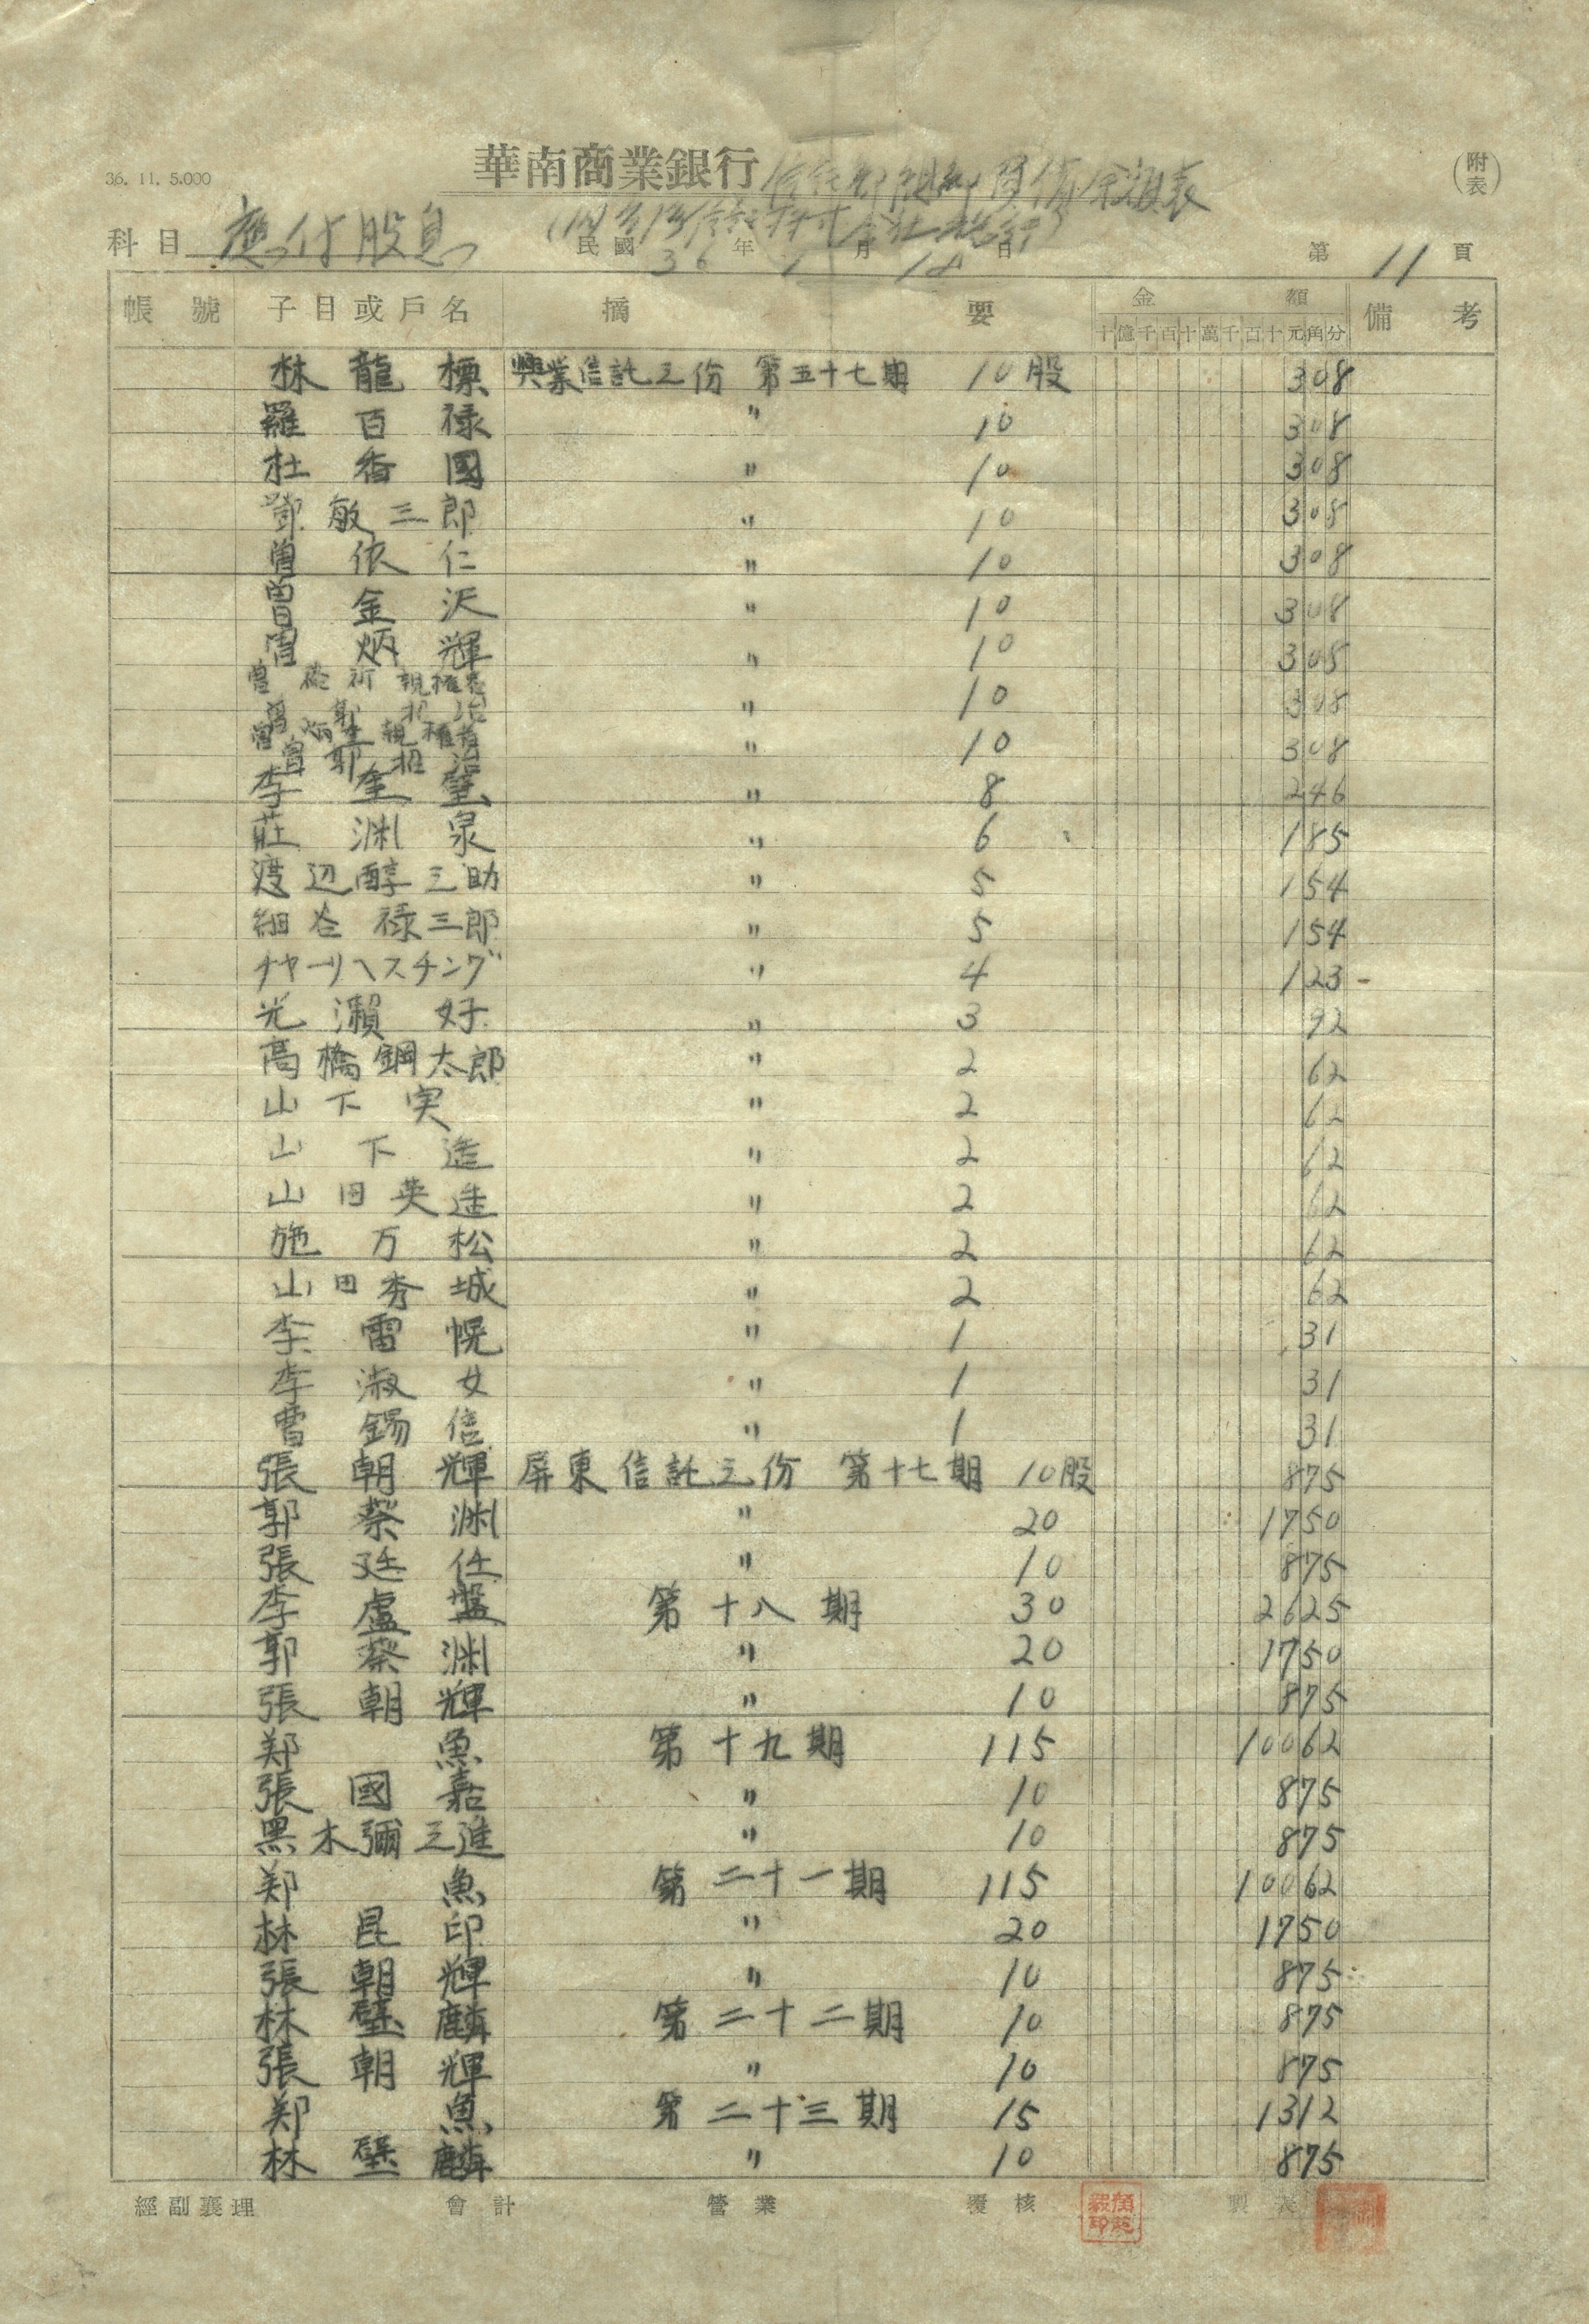 36. 11. 5.000
華南商業銀行 信託部開辦時負債余額表
(附表)
科目 應付股息 民國 36 年 1 月 18 日 第 11 頁
帳號 子目或戶名 摘要 金額 備考
十億千百十萬千百十元角分
林龍標 興業信託之份 第五十七期 10股 308
羅百祿 〃 10 308
杜香國 〃 10 308
鄧敏三郎 〃 10 308
曾依仁 〃 10 308
曾金沢 〃 10 308
曾炳輝 〃 10 308
曾 親權者
曾郭招治 〃 10 308
曾炳生親權者
曾郭招治 〃 10 308
李金 〃 8 246
莊渊泉 〃 6 185
渡辺醇三助 〃 5 154
細谷祿三郎 〃 5 154
チヤーリヘスチング 〃 4 123
光瀨好 〃 3 92
高橋鋼太郎 〃 2 62
山下実 〃 2 62
山下造 〃 2 62
山田英造 〃 2 62
施万松 〃 2 62
山田秀城 〃 2 62
李雷幌 〃 1 31
李淑女 〃 1 31
曹錫信 〃 1 31
張朝輝 屏東信託之份 第十七期 10股 875
郭蔡渊 〃 20 1750
張廷任 〃 10 875
李盧盤 第十八期 30 2625
郭蔡渊 〃 20 1750
張朝輝 〃 10 875
郑魚 第十九期 115 10062
張國嘉 〃 10 875
黑木彌三進 〃 10 875
郑魚 第二十一期 115 10062
林昆印 〃 20 1750
張朝輝 〃 10 875
林璧麟 第二十二期 10 875
張朝輝 〃 10 875
郑魚 第二十三期 15 1312
林璧麟 〃 10 875
經副襄理 會計 營業 覆核 製表